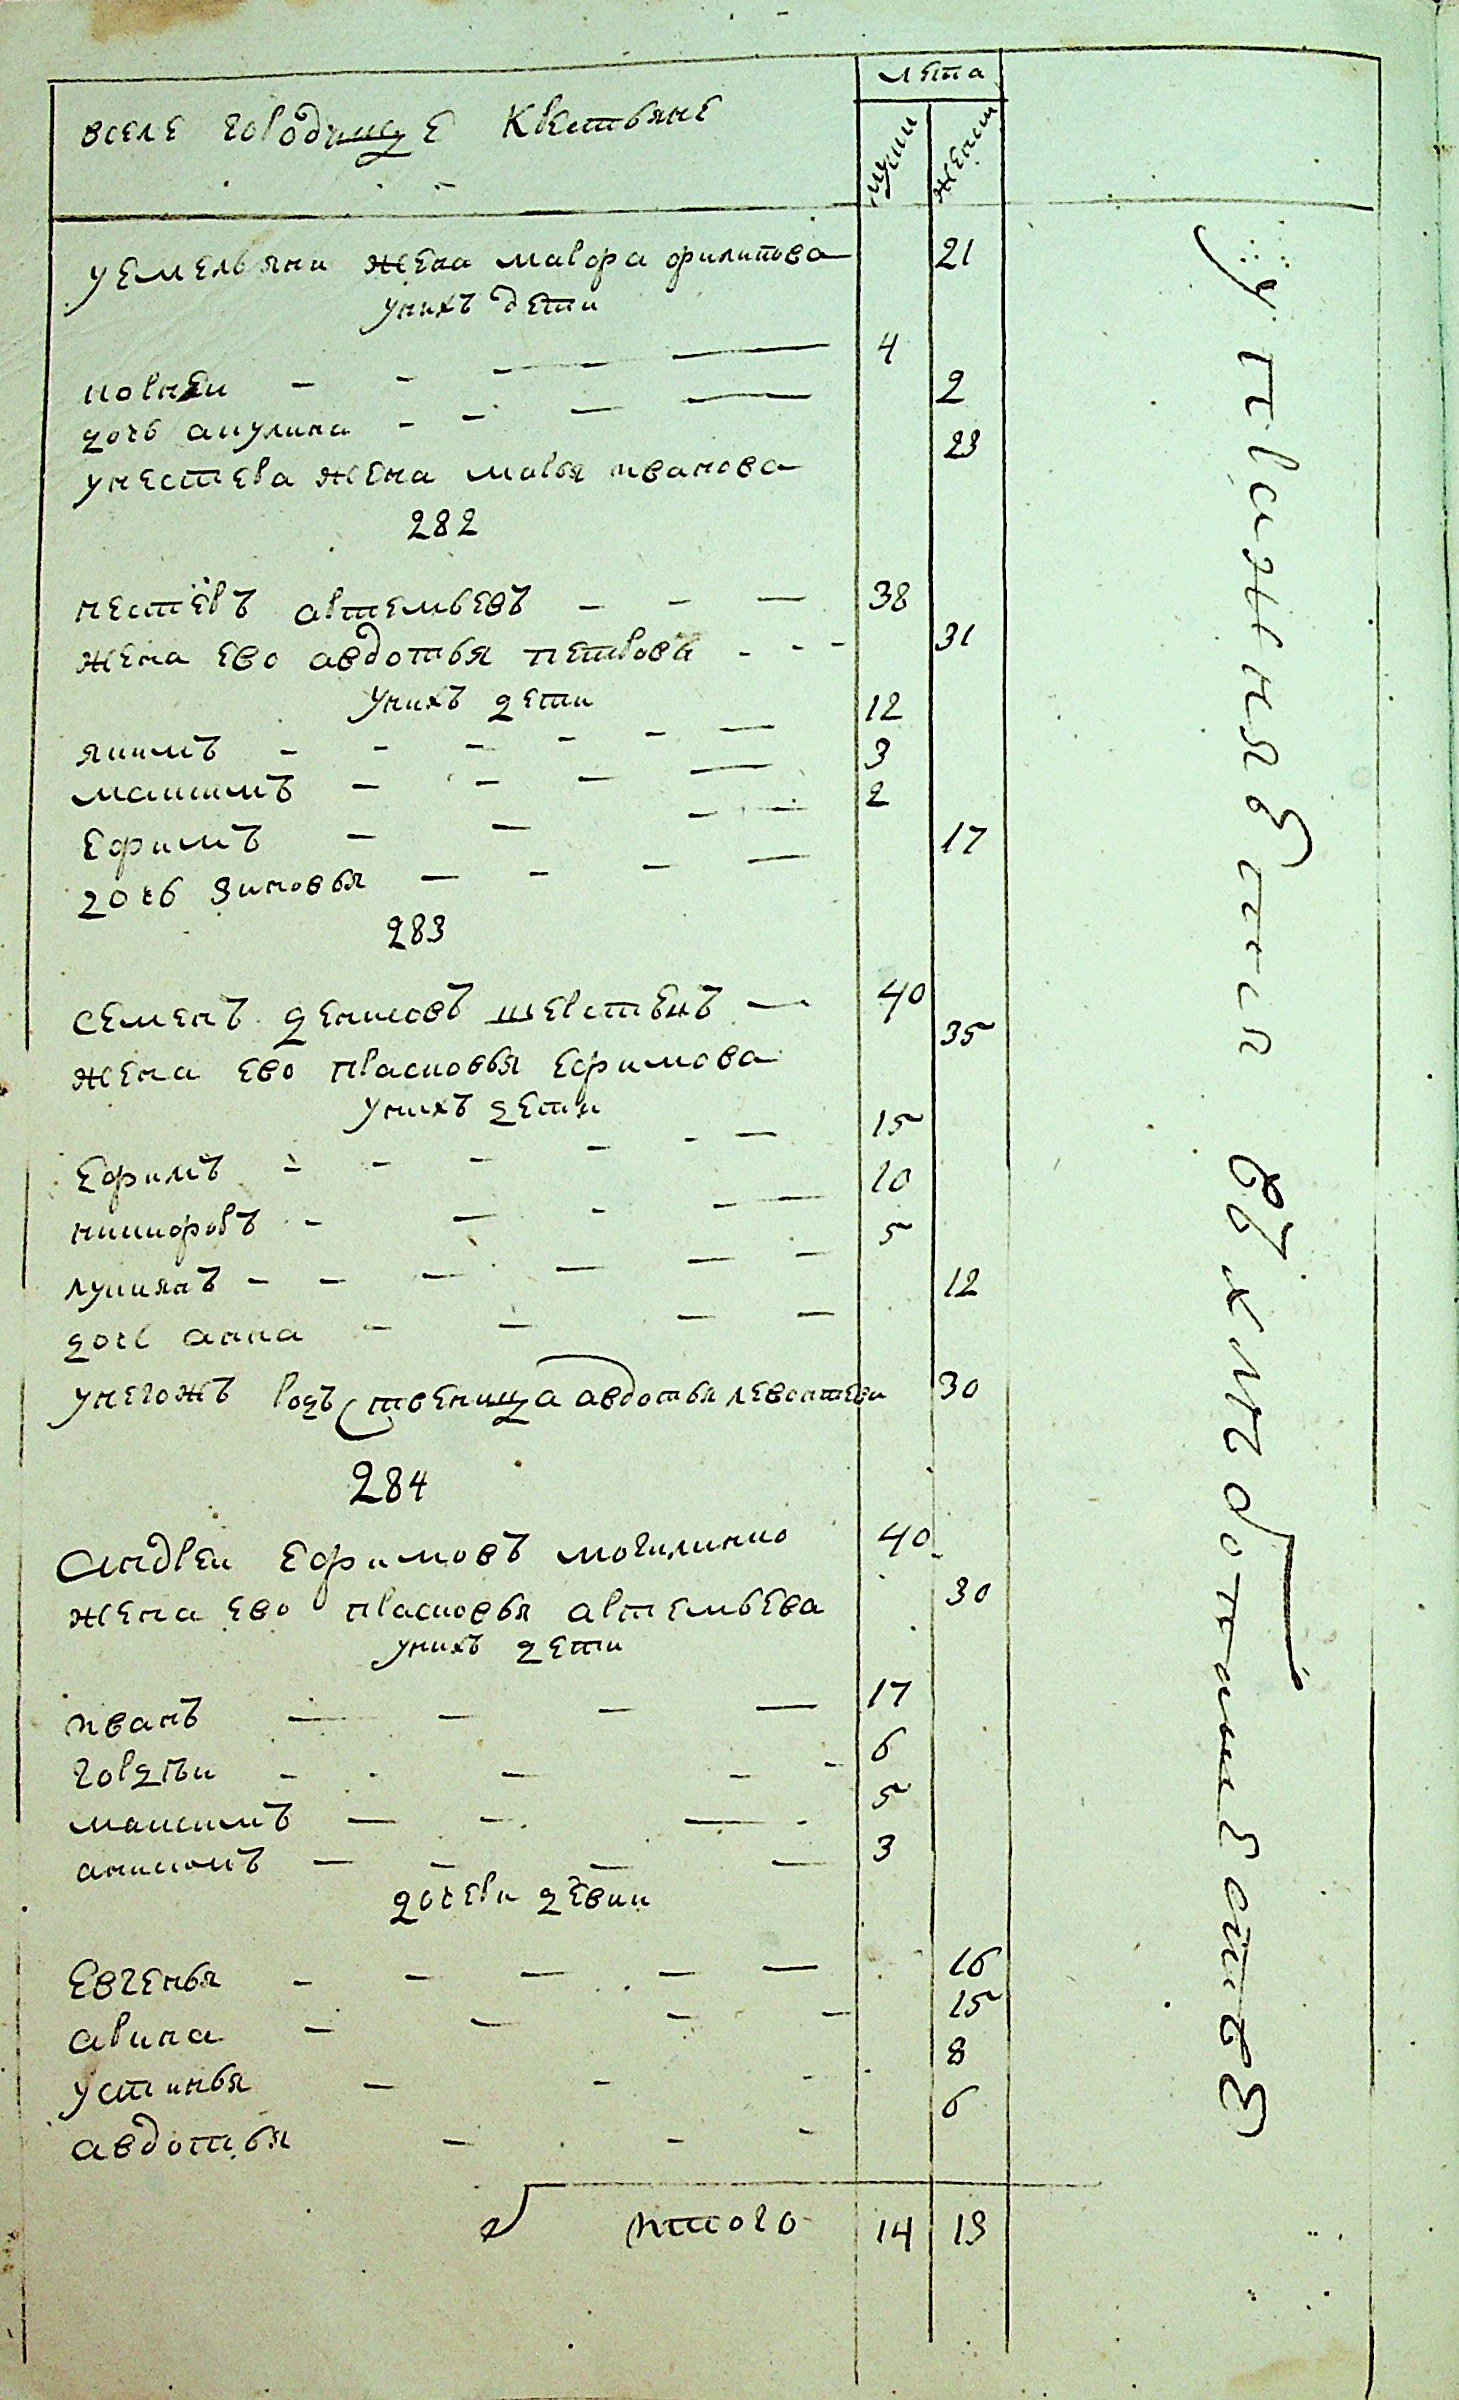 вселе городище Крестьяне
лета
мужи
женск
уемельяна жена мавра филипова 21
унихъ дети
корней 4
дочь акулина 2
унестера жена марья иванова 23
282
нестеръ артемьевъ 38
жена ево авдотья петрова 31
унихъ дети
якимъ 12
максимъ 3
Ефимъ 2
дочь зиновья 17
283
семенъ денисовъ шерстенъ 40
жена ево прасковья Ефимова 35
унихъ дети
Ефимъ 15
никифоръ 10
лукиянъ 5
дочь анна 12
унегожъ родственица авдотья левонтева 30
284
андреи Ефимовъ могилинко 40
жена ево прасковья артемьева 30
унихъ дети
иванъ 17
гордеи 6
максимъ 5
анисимъ 3
дочери девки
Евгенья 16
арина 15
устинья 8
авдотья 6
итого 14 13